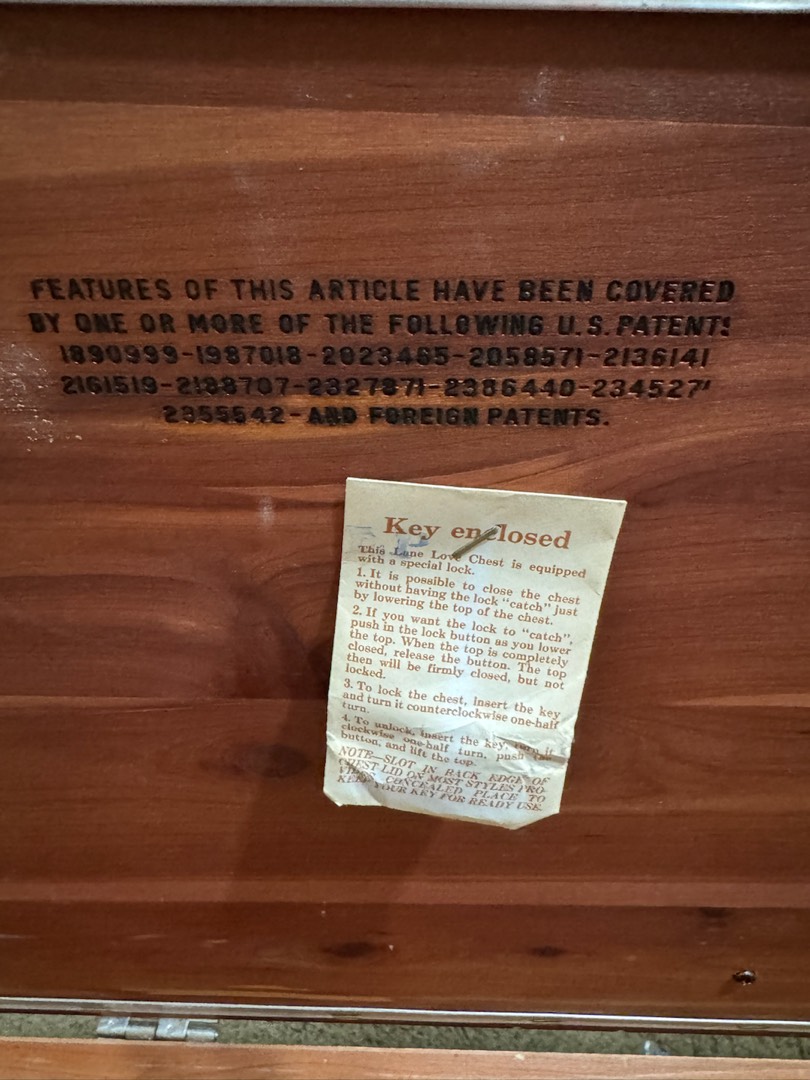 FEATURES OF THIS ARTICLE HAVE BEEN COVERED
BY ONE OR MORE OF THE FOLLOWING U.S. PATENTS
1890999-1987018-2023465-2058571-2136141
2161519-2188707-2327871-2386440-
2355542-AND FOREIGN PATENTS.
Key enclosed
This Lane Love Chest is equipped
with a special lock.
1. It is possible to close the chest
without having the lock "catch" just
by lowering the top of the chest.
2. If you want the lock to "catch",
push in the lock button as you lower
the top. When the top is completely
closed, release the button. The top
then will be firmly closed, but not
locked.
3. To lock the chest, insert the key
and turn it counterclockwise one-half
turn.
4. To unlock, insert the key, turn it
clockwise one-half turn, push the
button, and lift the top.
NOTE—SLOT IN BACK EDGE OF
CHEST LID ON MOST STYLES PRO-
CONCEALED PLACE TO
YOUR KEY FOR READY USE.